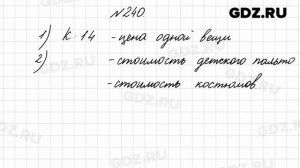 GDZ.RU
№240.
1) К:14 - цена одной вещи
2) - стоимость детского пальто
- стоимость костюмов.